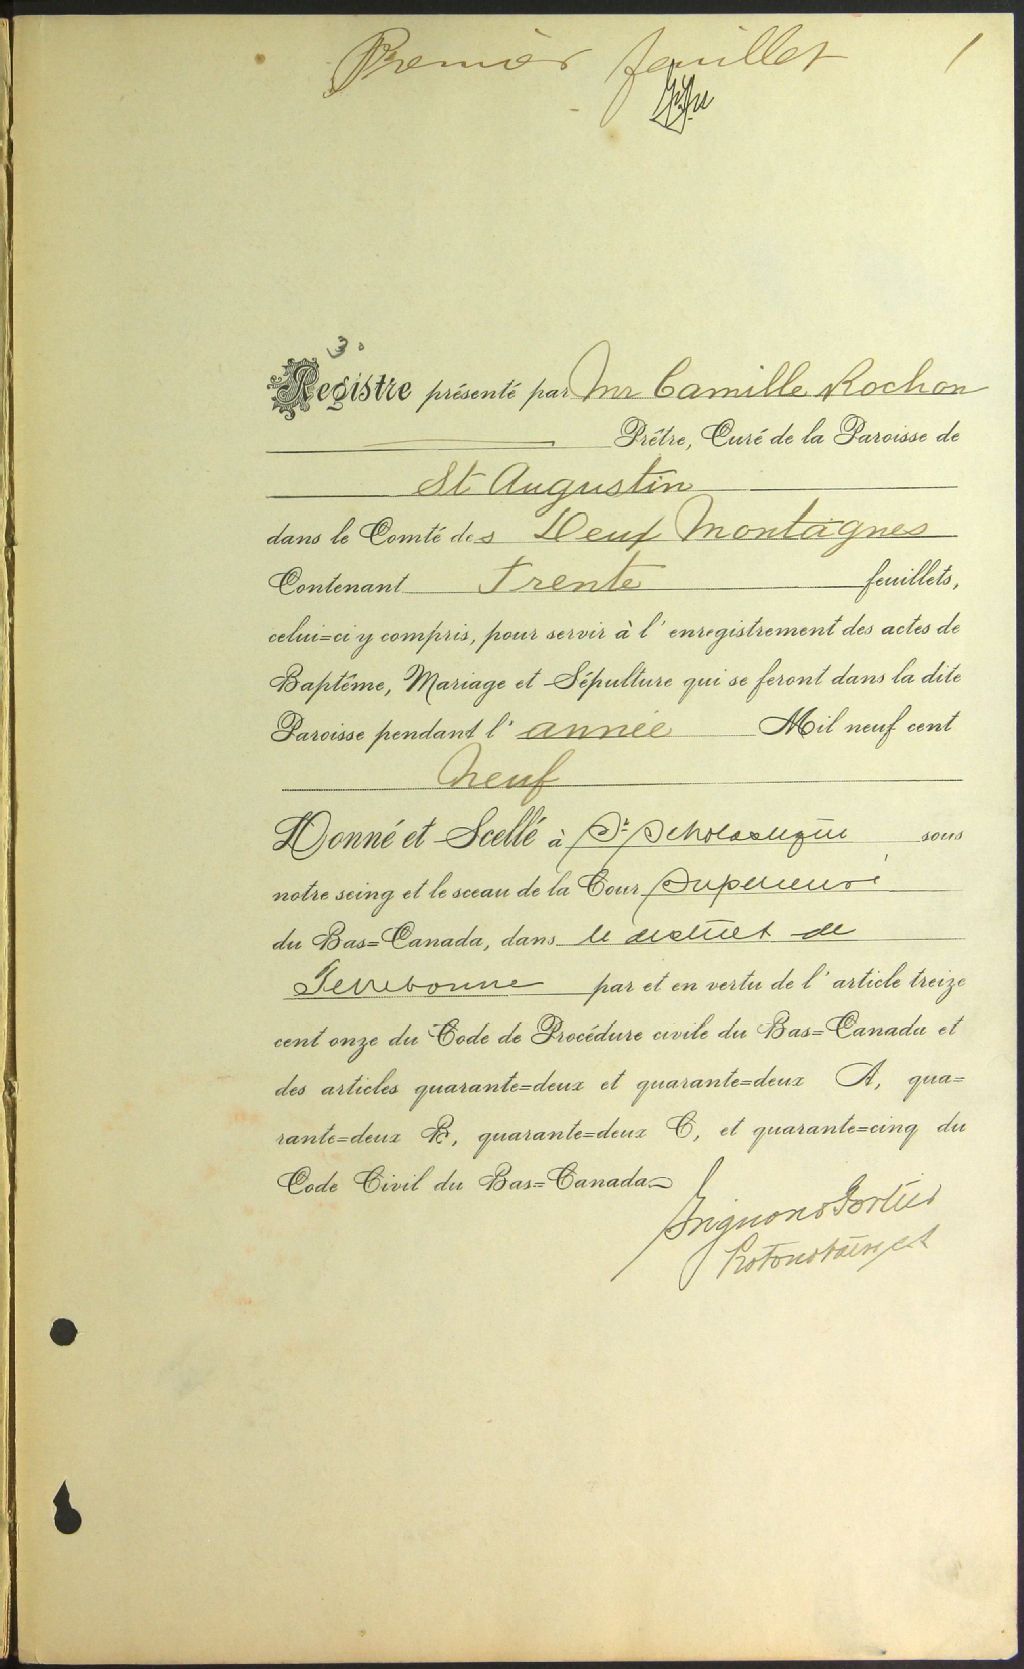 Premier feuillet 1
3.
Registre présenté par Mr Camille Rochon
Prêtre, Curé de la Paroisse de
St Augustin
dans le Comté des Deux Montagnes
Contenant Trente feuillets,
celui=ci y compris, pour servir à l'enregistrement des actes de
Baptême, Mariage et Sépulture qui se feront dans la dite
Paroisse pendant l'année Mil neuf cent
Neuf
Donné et Scellé à Ste Scholastique sous
notre seing et le sceau de la Cour Supérieure
du Bas=Canada, dans le district de
Terrebonne par et en vertu de l'article treize
cent onze du Code de Procédure civile du Bas=Canada et
des articles quarante=deux et quarante=deux A, qua=
rante=deux B, quarante=deux C, et quarante=cinq du
Code Civil du Bas=Canada.
Grignon & Fortier